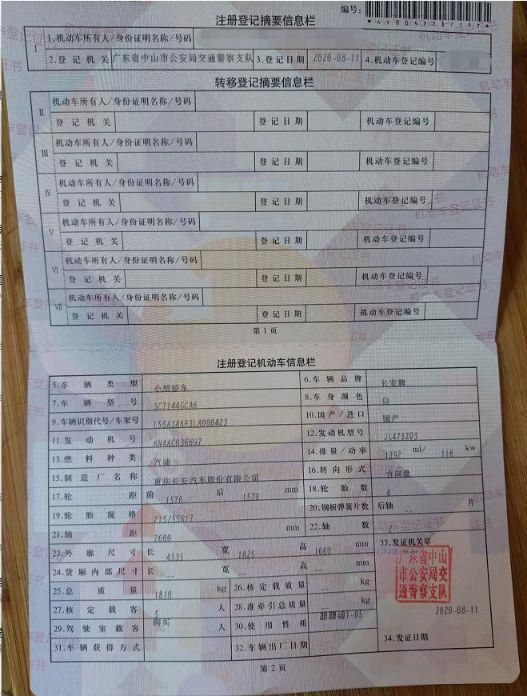 编号:
注册登记摘要信息栏
I 1.机动车所有人/身份证明名称/号码
2.登记机关 广东省中山市公安局交通警察支队 3.登记日期 2020-08-11 4.机动车登记编号
转移登记摘要信息栏
II 机动车所有人/身份证明名称/号码
登记机关 登记日期 机动车登记编号
III 机动车所有人/身份证明名称/号码
登记机关 登记日期 机动车登记编号
IV 机动车所有人/身份证明名称/号码
登记机关 登记日期 机动车登记编号
V 机动车所有人/身份证明名称/号码
登记机关 登记日期 机动车登记编号
VI 机动车所有人/身份证明名称/号码
登记机关 登记日期 机动车登记编号
VII 机动车所有人/身份证明名称/号码
登记机关 登记日期 机动车登记编号
第1页
注册登记机动车信息栏
5.车辆类型 小型轿车 6.车辆品牌 长安牌
7.车辆型号 SC7144GCA6 8.车身颜色 白
9.车辆识别代号/车架号 10.国产/进口 国产
11.发动机号 12.发动机型号 JL473ZQ3
13.燃料种类 汽油 14.排量/功率 1392 ml/ 116 kw
15.制造厂名称 重庆长安汽车股份有限公司 16.转向形式 方向盘
17.轮距 前 1570 后 1570 mm 18.轮胎数 4
19.轮胎规格 215/55R17 20.钢板弹簧片数 后轴 片
21.轴距 2600 mm 22.轴数 2
23.外廓尺寸 长 4335 宽 1825 高 1660 mm 33.发证机关章
24.货厢内部尺寸 长 宽 高 mm
广东省中山
市公安局交
通警察支队
25.总质量 1810 kg 26.核定载质量 kg
27.核定载客 5 人 28.准牵引总质量 kg
29.驾驶室载客 人 30.使用性质
2020-08-11
31.车辆获得方式 购买 32.车辆出厂日期
34.发证日期
第2页